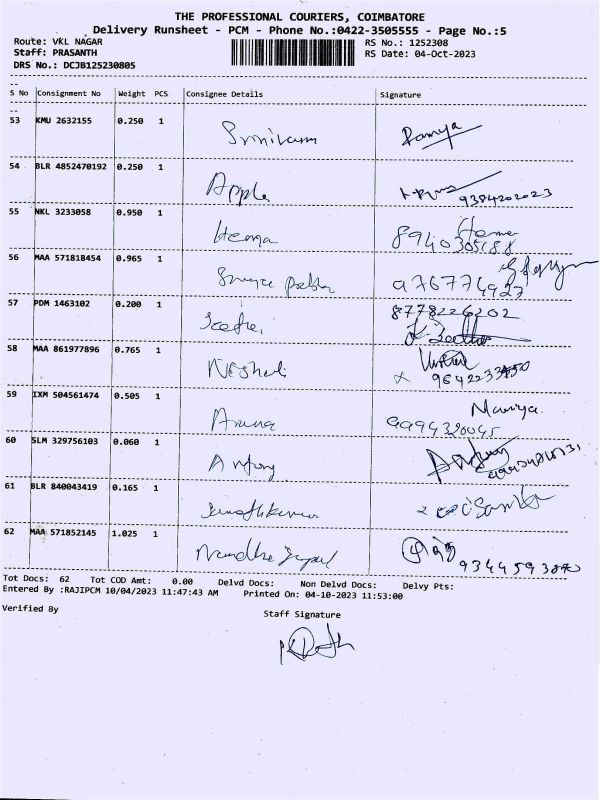 THE PROFESSIONAL COURIERS, COIMBATORE
Delivery Runsheet - PCM - Phone No.:0422-3505555 - Page No.:5
Route: VKL NAGAR RS No.: 1252308
Staff: PRASANTH RS Date: 04-Oct-2023
DRS No.: DCJB125230805
S No Consignment No Weight PCS Consignee Details Signature
53 KMU 2632155 0.250 1 Ramya
54 BLR 4852470192 0.250 1 Apple 9384202023
55 NKL 3233058 0.950 1 Hema Hema
8940305188
56 MAA 571818454 0.965 1
9767774927
57 PDM 1463102 0.200 1 8778226202
58 MAA 861977896 0.765 1
59 IXM 504561474 0.505 1 Aruna
9994320045
60 SLM 329756103 0.060 1 Antony
61 BLR 840043419 0.165 1
62 MAA 571852145 1.025 1
Tot Docs: 62 Tot COD Amt: 0.00 Delvd Docs: Non Delvd Docs: Delvy Pts:
Entered By :RAJIPCM 10/04/2023 11:47:43 AM Printed On: 04-10-2023 11:53:00
Verified By Staff Signature